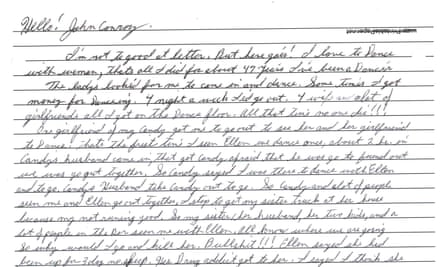 Hello! John Conroy.
I'm not to good at letter. But here goes! I love to Dance
with woman, thats all I did for about 47 years I've been a Dancer
The ladys looked for me to come in and dance. Some times I got
money for Dancing. 4 night a week I'd go out. I with alot of
girlfriends all I got on the Dance floor. All that time no one
One girlfriend of my Candy got me to go out to see her and her girlfriend
to Dance! thats the first time I seen Ellen me dance once, about 2 hr. in
Candys husband came in, that got Candy afraid that he was go to found out
we was go out together. So Candy sayed I was there to dance with Ellen
and to go. Candys Husband take Candy out to go. So Candy and alot of people
seen me and Ellen go out together, I stop to get my sister truck at her house
because my not running good. So my sister, her husband, her two kids, and a
lot of people in the Bar seen me with Ellen. all know where we are going
So why would I go and kill her. Bullshit!!! Ellen sayed she had
been up for 3 day no sleep. Her Drug addict got to her. I sayed I think she